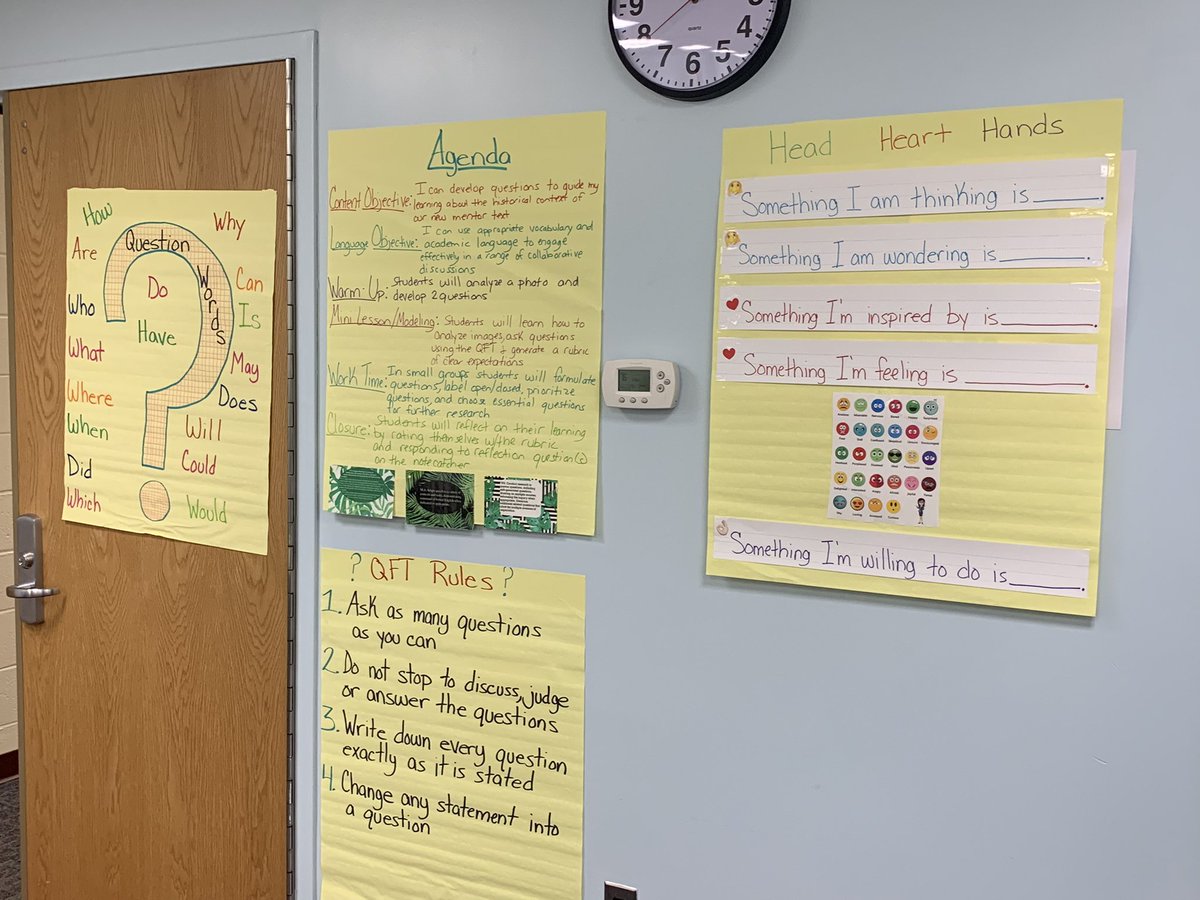 How
Why
Question
Words
Are
Do
Can
Who
Have
Is
What
May
Where
Does
When
Will
Did
Could
Which
Would
Agenda
Content Objective: I can develop questions to guide my
learning about the historical context of
our new mentor text
Language Objective: I can use appropriate vocabulary and
academic language to engage
effectively in a range of collaborative
discussions
Warm-Up: Students will analyze a photo and
develop 2 questions
Mini Lesson/Modeling: Students will learn how to
analyze images, ask questions
using the QFT & generate a rubric
of clear expectations
Work Time: In small groups students will formulate
questions, label open/closed, prioritize
questions, and choose essential questions
for further research
Closure: Students will reflect on their learning
by rating themselves w/the rubric
and responding to reflection question(s)
on the notecatcher
? QFT Rules ?
1. Ask as many questions
as you can
2. Do not stop to discuss, judge
or answer the questions
3. Write down every question
exactly as it is stated
4. Change any statement into
a question
9
8
7
6
5
4
3
quartz
Head Heart Hands
Something I am thinking is______.
Something I am wondering is______.
Something I'm inspired by is______.
Something I'm feeling is______.
Something I'm willing to do is______.